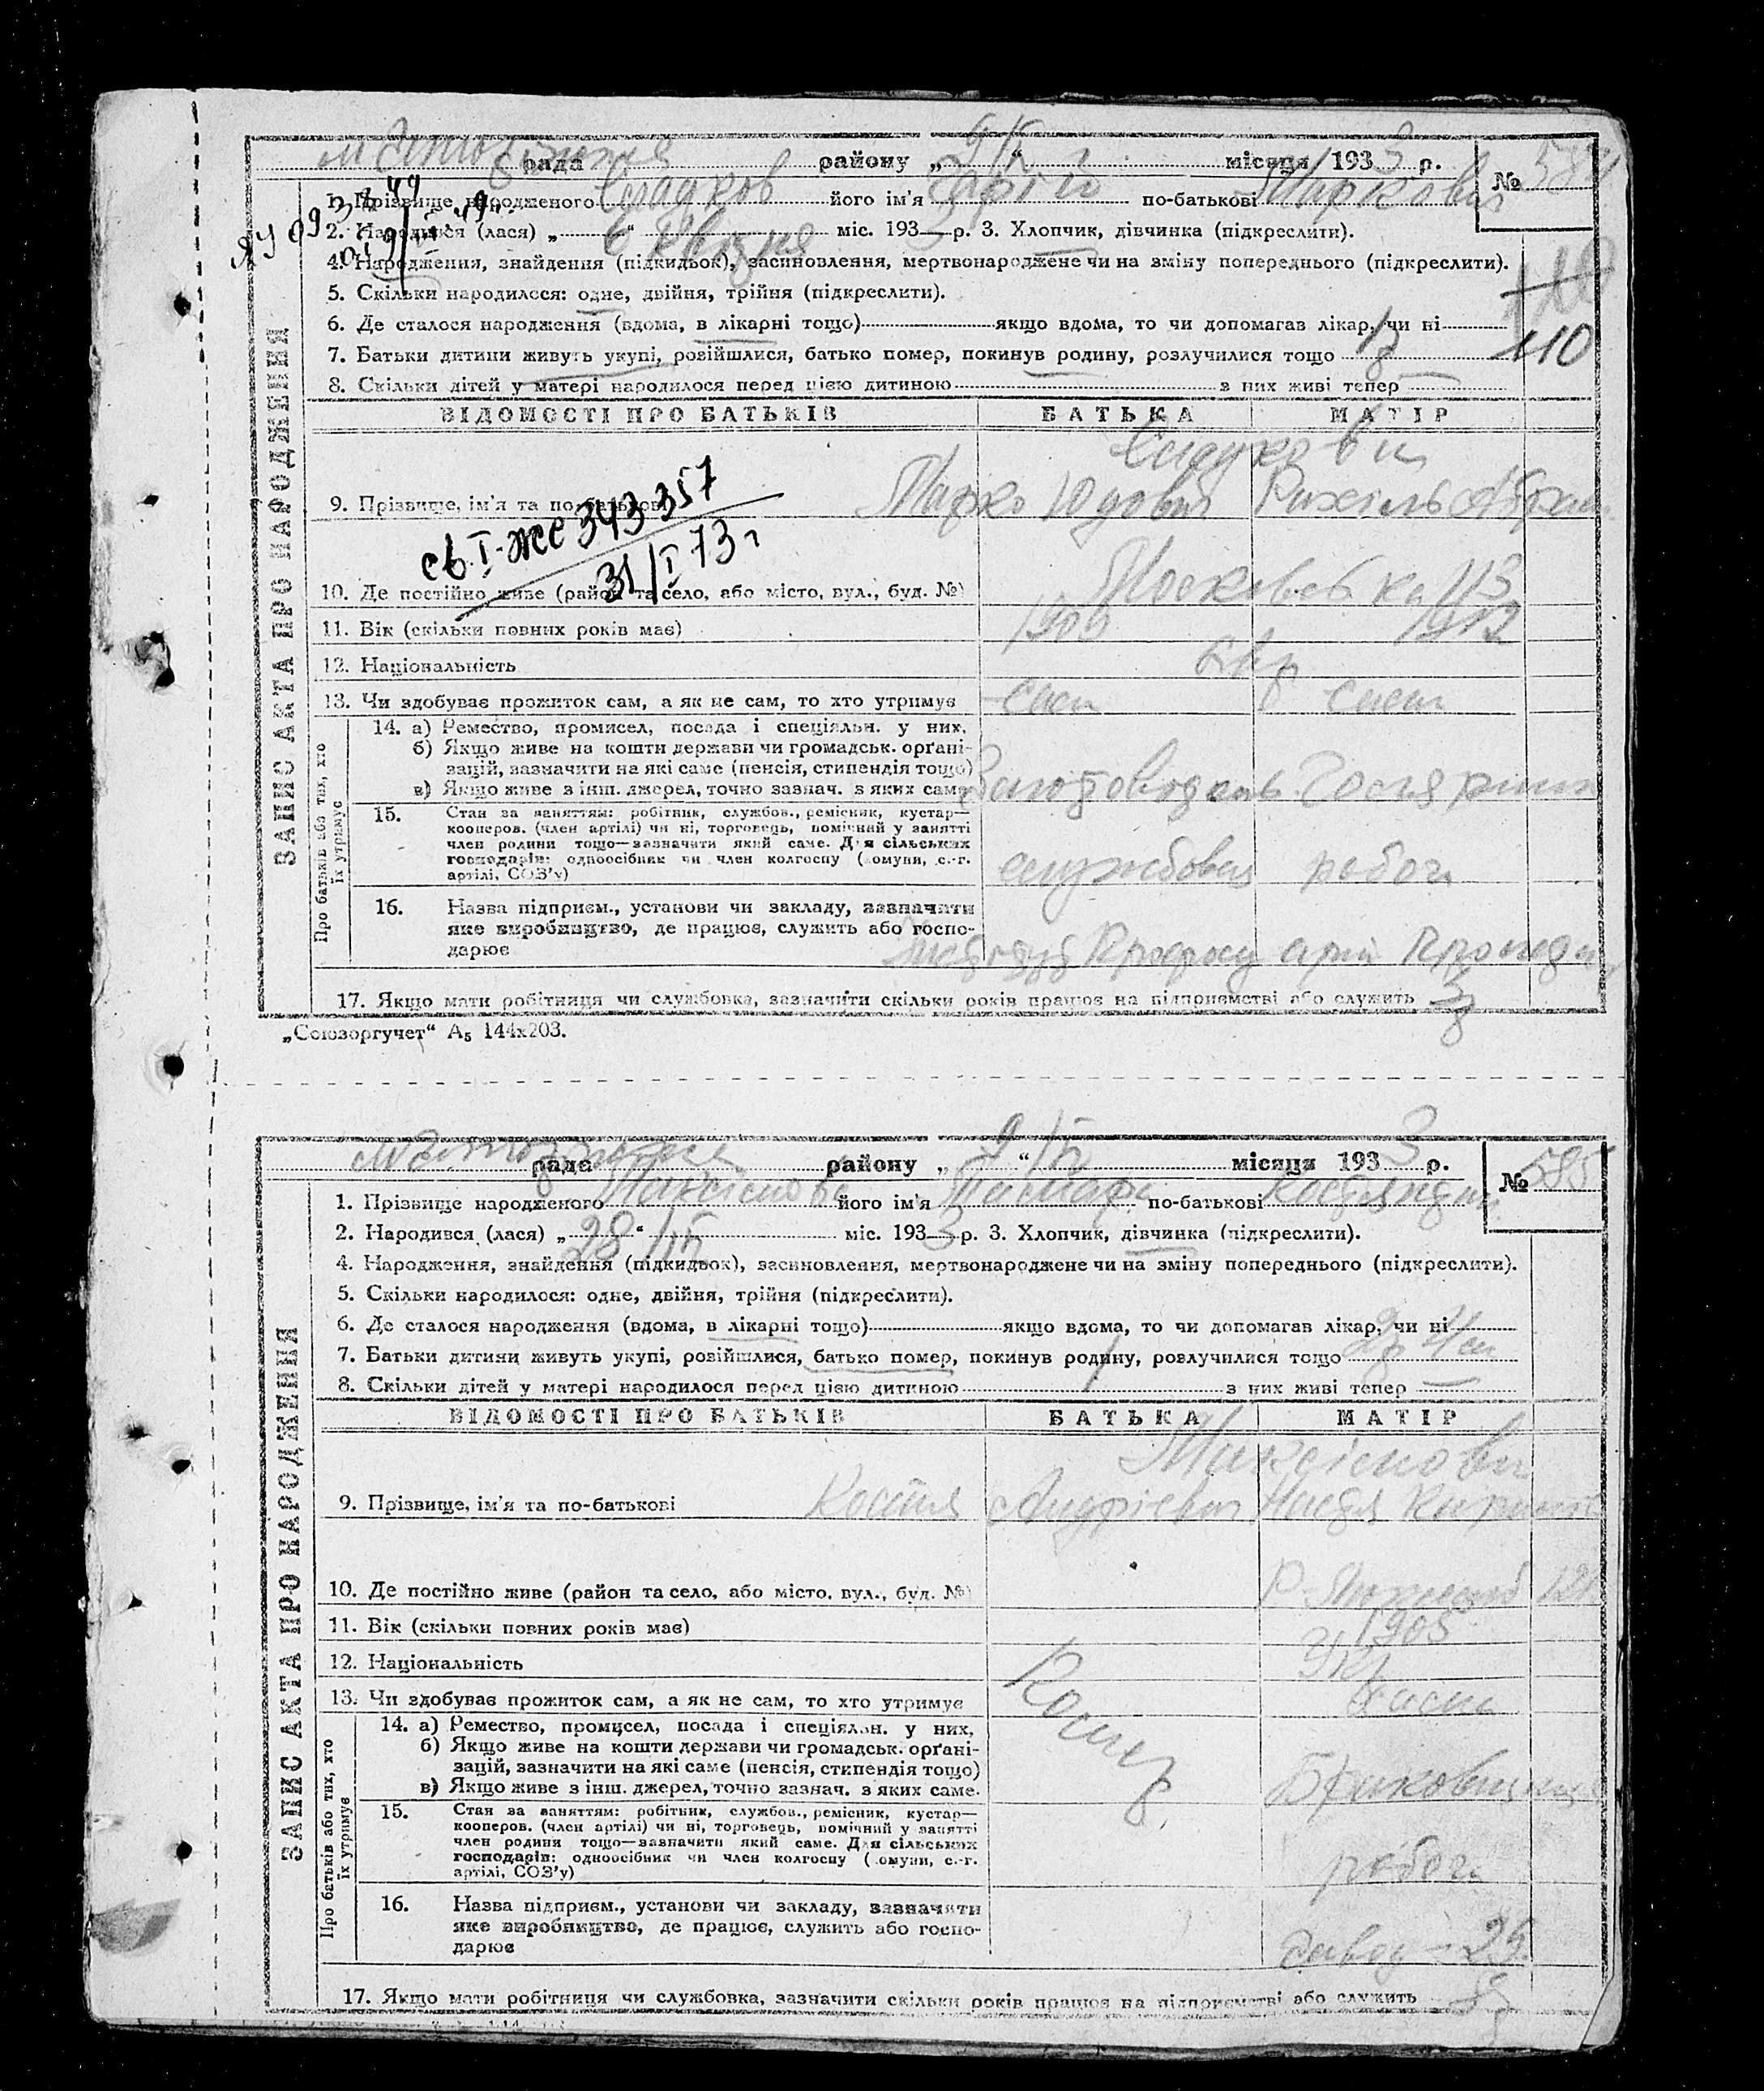 рада району „ 9/IV “ місяця 1933 р.
№ 584
1. Прізвище народженого його ім'я по-батькові Маркович
2. Народився (лася) „ 6 “ квітня міс. 193 р. 3. Хлопчик, дівчинка (підкреслити).
4. Народження, знайдення (підкидьок), засиновлення, мертвонароджене чи на зміну попереднього (підкреслити).
5. Скільки народилося: одне, двійня, трійня (підкреслити).
6. Де сталося народження (вдома, в лікарні тощо) якщо вдома, то чи допомагав лікар, чи ні
7. Батьки дитини живуть укупі, розійшлися, батько помер, покинув родину, розлучилися тощо
110
8. Скільки дітей у матері народилося перед цією дитиною з них живі тепер —
ВІДОМОСТІ ПРО БАТЬКІВ БАТЬКА МАТІР
9. Прізвище, ім'я та по-батькові Марко Юдович Рахіль Абрам
св. I-ЖС 343357
31/I 73 г
10. Де постійно живе (район та село, або місто, вул., буд. №) Московська 113
11. Вік (скільки повних років має) 1909 1912
12. Національність євр
13. Чи здобуває прожиток сам, а як не сам, то хто утримує сам сам
14. а) Ремество, промисел, посада і спеціяльн. у них.
б) Якщо живе на кошти держави чи громадськ. орґані-
зацій, зазначити на які саме (пенсія, стипендія тощо)
в) Якщо живе з інш. джерел, точно зазнач. з яких саме
15. Стан за заняттям: робітник, службов., ремісник, кустар—
кооперов. (член артілі) чи ні, торговець, помічний у занятті
член родини тощо—зазначити який саме. Для сільських
господарів: одноосібник чи член колгоспу (комуни, с.-г.
артілі, СОЗ'у)
службовец робоч
16. Назва підприєм., установи чи закладу, зазначити
яке виробництво, де працює, служить або госпо-
дарює
17. Якщо мати робітниця чи службовка, зазначити скільки років працює на підприємстві або служить
Про батьків або тих, хто
їх утримує
ЗАПИС АКТА ПРО НАРОДЖЕННЯ
„Союзоргучет“ А₅ 144х203.
рада району „ 9/IV “ місяця 1933 р.
№ 585
1. Прізвище народженого Максімова його ім'я Тамара по-батькові
2. Народився (лася) „ 28/III “ міс. 1933 р. 3. Хлопчик, дівчинка (підкреслити).
4. Народження, знайдення (підкидьок), засиновлення, мертвонароджене чи на зміну попереднього (підкреслити).
5. Скільки народилося: одне, двійня, трійня (підкреслити).
6. Де сталося народження (вдома, в лікарні тощо) якщо вдома, то чи допомагав лікар, чи ні
7. Батьки дитини живуть укупі, розійшлися, батько помер, покинув родину, розлучилися тощо
8. Скільки дітей у матері народилося перед цією дитиною 1 з них живі тепер —
ВІДОМОСТІ ПРО БАТЬКІВ БАТЬКА МАТІР
Максімови
9. Прізвище, ім'я та по-батькові Костя Андрієвич Настя
10. Де постійно живе (район та село, або місто, вул., буд. №)
11. Вік (скільки повних років має) 1905
12. Національність Укр
13. Чи здобуває прожиток сам, а як не сам, то хто утримує сам
14. а) Ремество, промисел, посада і спеціяльн. у них.
б) Якщо живе на кошти держави чи громадськ. орґані-
зацій, зазначити на які саме (пенсія, стипендія тощо)
в) Якщо живе з інш. джерел, точно зазнач. з яких саме.
15. Стан за заняттям: робітник, службов., ремісник, кустар—
кооперов. (член артілі) чи ні, торговець, помічний у занятті
член родини тощо—зазначити який саме. Для сільських
господарів: одноосібник чи член колгоспу (комуни, с.-г.
артілі, СОЗ'у)
робоч
16. Назва підприєм., установи чи закладу, зазначити
яке виробництво, де працює, служить або госпо-
дарює
завод
17. Якщо мати робітниця чи службовка, зазначити скільки років працює на підприємстві або служить
Про батьків або тих, хто
їх утримує
ЗАПИС АКТА ПРО НАРОДЖЕННЯ